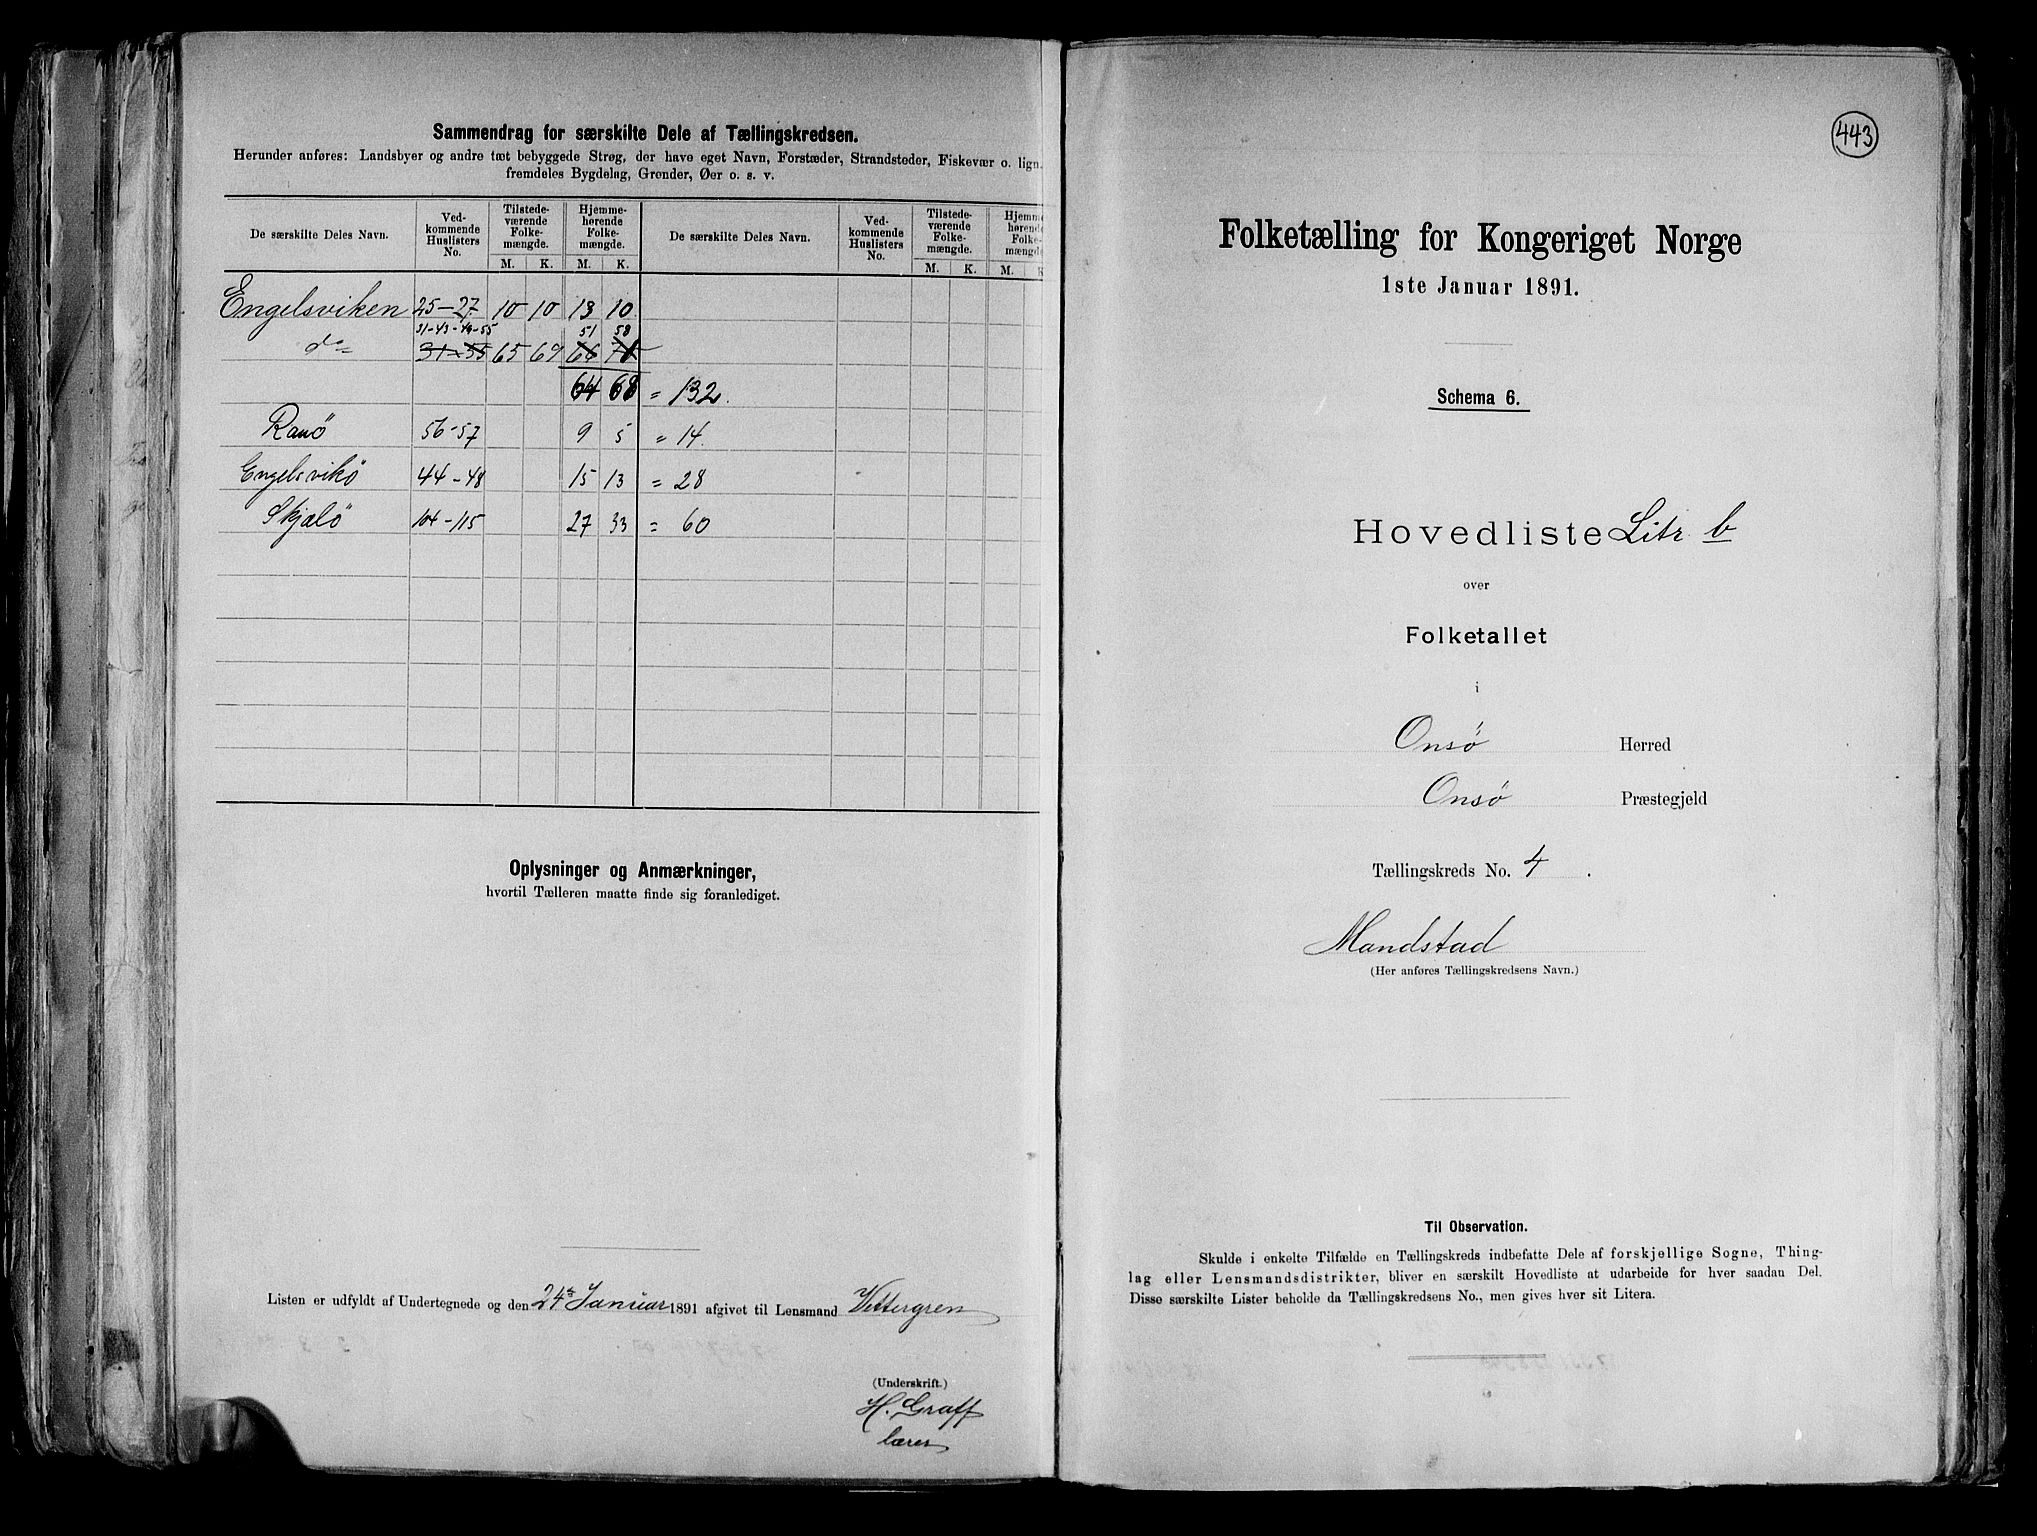 Sammendrag for særskilte Dele af Tællingskredsen.
Herunder anføres: Landsbyer og andre tæt bebyggede Strøg, der have eget Navn, Forstæder, Strandsteder, Fiskevær o. lign.
fremdeles Bygdelag, Grender, Øer o. s. v.
De særskilte Deles Navn. Ved-kommende Huslisters No. Tilstede-værende Folke-mængde. Hjemme-hørende Folke-mængde. De særskilte Deles Navn. Ved-kommende Huslisters No. Tilstede-værende Folke-mængde. Hjemme-hørende Folke-mængde
M. K. M. K. M. K. M. K
Engelsviken 25-27 10 10 13 10
31-43-49-55 51 58
do 31-55 65 69 66 71
64 68 = 132.
Ranö 56-57 9 5 = 14.
Engelsvikö 44-48 15 13 = 28
Skjælö 104-115 27 33 = 60
Oplysninger og Anmærkninger,
hvortil Tælleren maatte finde sig foranlediget.
Listen er udfyldt af Undertegnede og den 24de Januar 1891 afgivet til Lensmand Wettergren
(Underskrift.)
H. Graff
lærer
443
Folketælling for Kongeriget Norge
1ste Januar 1891.
Schema 6.
Hovedliste Litr b
over
Folketallet
i
Onsö Herred
Onsö Præstegjeld
Tællingskreds No. 4.
Mandstad
(Her anføres Tællingskredsens Navn.)
Til Observation.
Skulde i enkelte Tilfælde en Tællingskreds indbefatte Dele af forskjellige Sogne, Thing-
lag eller Lensmandsdistrikter, bliver en særskilt Hovedliste at udarbeide for hver saadan Del.
Disse særskilte Lister beholde da Tællingskredsens No., men gives hver sit Litera.